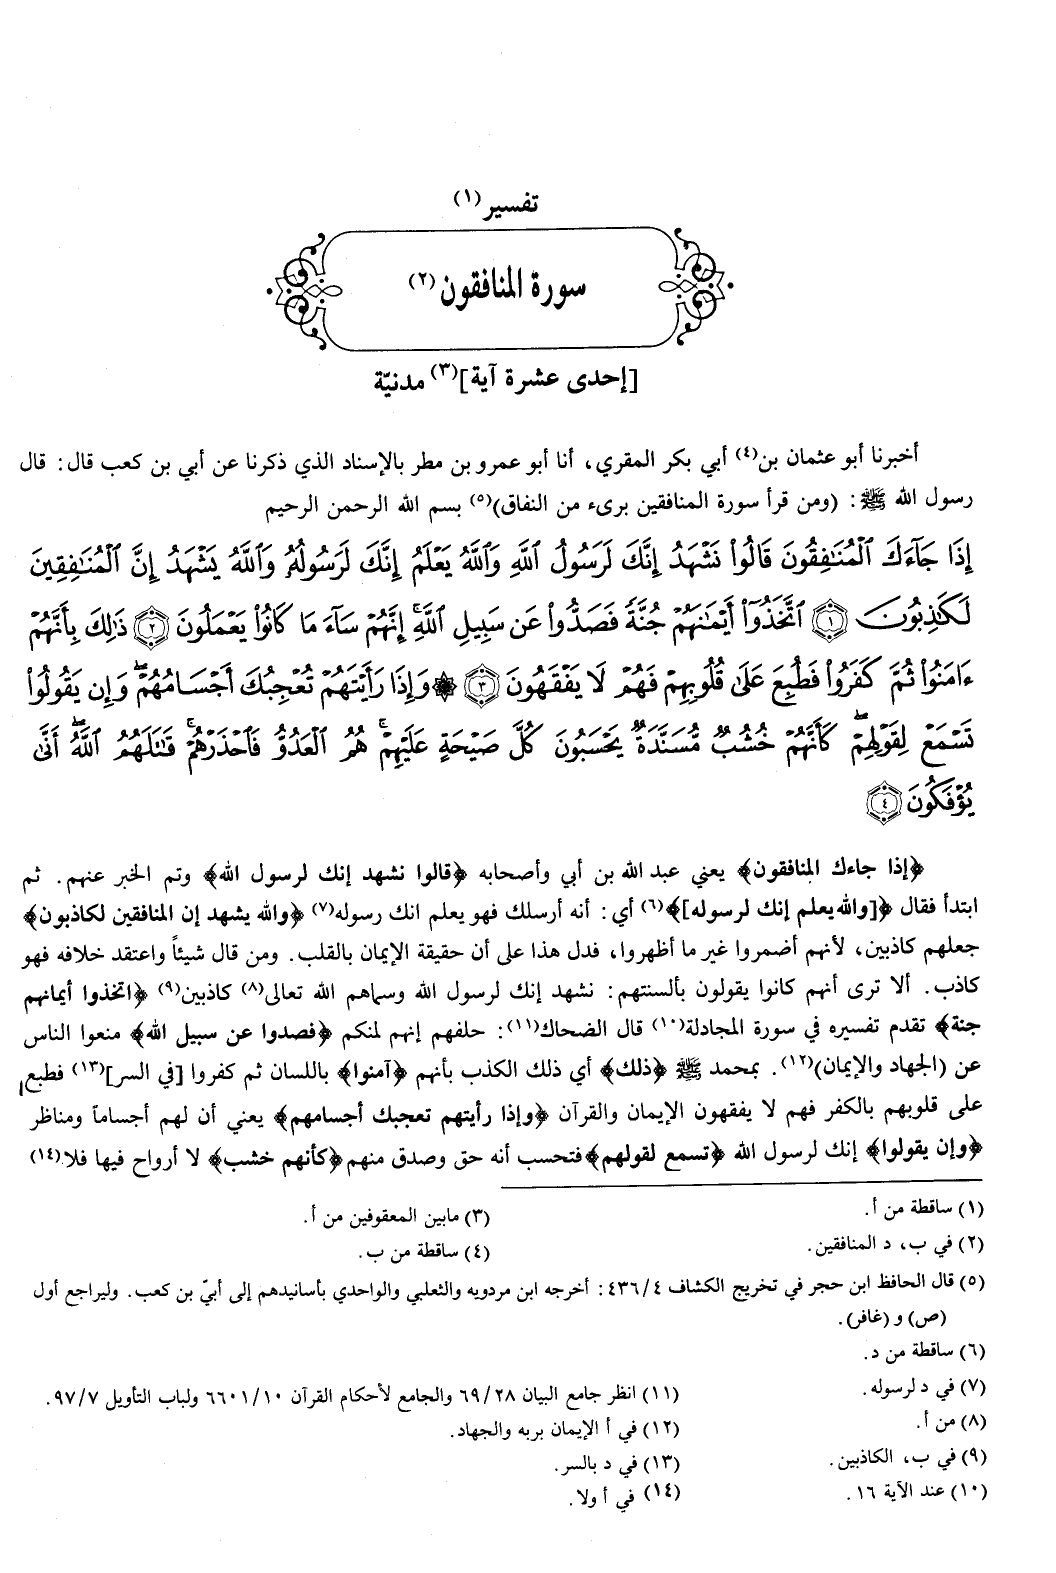 تفسير (١)
سورة المنافقون (٢)
[إحدى عشرة آية](٣) مدنيّة
أخبرنا أبو عثمان بن(٤) أبي بكر المقري، أنا أبو عمرو بن مطر بالإسناد الذي ذكرنا عن أبي بن كعب قال: قال
رسول الله ﷺ: (ومن قرأ سورة المنافقين برىء من النفاق)(٥) بسم الله الرحمن الرحيم
إِذَا جَآءَكَ ٱلْمُنَٰفِقُونَ قَالُوا۟ نَشْهَدُ إِنَّكَ لَرَسُولُ ٱللَّهِ وَٱللَّهُ يَعْلَمُ إِنَّكَ لَرَسُولُهُۥ وَٱللَّهُ يَشْهَدُ إِنَّ ٱلْمُنَٰفِقِينَ
لَكَٰذِبُونَ ﴿١﴾ ٱتَّخَذُوٓا۟ أَيْمَٰنَهُمْ جُنَّةً فَصَدُّوا۟ عَن سَبِيلِ ٱللَّهِ ۚ إِنَّهُمْ سَآءَ مَا كَانُوا۟ يَعْمَلُونَ ﴿٢﴾ ذَٰلِكَ بِأَنَّهُمْ
ءَامَنُوا۟ ثُمَّ كَفَرُوا۟ فَطُبِعَ عَلَىٰ قُلُوبِهِمْ فَهُمْ لَا يَفْقَهُونَ ﴿٣﴾ ۞ وَإِذَا رَأَيْتَهُمْ تُعْجِبُكَ أَجْسَامُهُمْ ۖ وَإِن يَقُولُوا۟
تَسْمَعْ لِقَوْلِهِمْ ۖ كَأَنَّهُمْ خُشُبٌ مُّسَنَّدَةٌ ۖ يَحْسَبُونَ كُلَّ صَيْحَةٍ عَلَيْهِمْ ۚ هُمُ ٱلْعَدُوُّ فَٱحْذَرْهُمْ ۚ قَٰتَلَهُمُ ٱللَّهُ ۖ أَنَّىٰ
يُؤْفَكُونَ ﴿٤﴾
﴿إذا جاءك المنافقون﴾ يعني عبد الله بن أبي وأصحابه ﴿قالوا نشهد إنك لرسول الله﴾ وتم الخبر عنهم. ثم
ابتدأ فقال ﴿[والله يعلم إنك لرسوله]﴾(٦) أي: أنه أرسلك فهو يعلم انك رسوله(٧) ﴿والله يشهد إن المنافقين لكاذبون﴾
جعلهم كاذبين، لأنهم أضمروا غير ما أظهروا، فدل هذا على أن حقيقة الإيمان بالقلب. ومن قال شيئاً واعتقد خلافه فهو
كاذب. ألا ترى أنهم كانوا يقولون بألسنتهم: نشهد إنك لرسول الله وسماهم الله تعالى(٨) كاذبين(٩) ﴿اتخذوا أيمانهم
جنة﴾ تقدم تفسيره في سورة المجادلة(١٠) قال الضحاك(١١): حلفهم إنهم لمنكم ﴿فصدوا عن سبيل الله﴾ منعوا الناس
عن (الجهاد والإيمان)(١٢). بمحمد ﷺ ﴿ذلك﴾ أي ذلك الكذب بأنهم ﴿آمنوا﴾ باللسان ثم كفروا [في السر](١٣) فطبع
على قلوبهم بالكفر فهم لا يفقهون الإيمان والقرآن ﴿وإذا رأيتهم تعجبك أجسامهم﴾ يعني أن لهم أجساماً ومناظر
﴿وإن يقولوا﴾ إنك لرسول الله ﴿تسمع لقولهم﴾ فتحسب أنه حق وصدق منهم ﴿كأنهم خشب﴾ لا أرواح فيها فلا(١٤)
(١) ساقطة من أ.
(٢) في ب، د المنافقين.
(٣) مابين المعقوفين من أ.
(٤) ساقطة من ب.
(٥) قال الحافظ ابن حجر في تخريج الكشاف ٤/٤٣٦: أخرجه ابن مردويه والثعلبي والواحدي بأسانيدهم إلى أبيّ بن كعب. وليراجع أول
(ص) و (غافر).
(٦) ساقطة من د.
(٧) في د لرسوله.
(٨) من أ.
(٩) في ب، الكاذبين.
(١٠) عند الآية ١٦.
(١١) انظر جامع البيان ٦٩/٢٨ والجامع لأحكام القرآن ٦٦٠١/١٠ ولباب التأويل ٩٧/٧.
(١٢) في أ الإيمان بربه والجهاد.
(١٣) في د بالسر.
(١٤) في أ ولا.